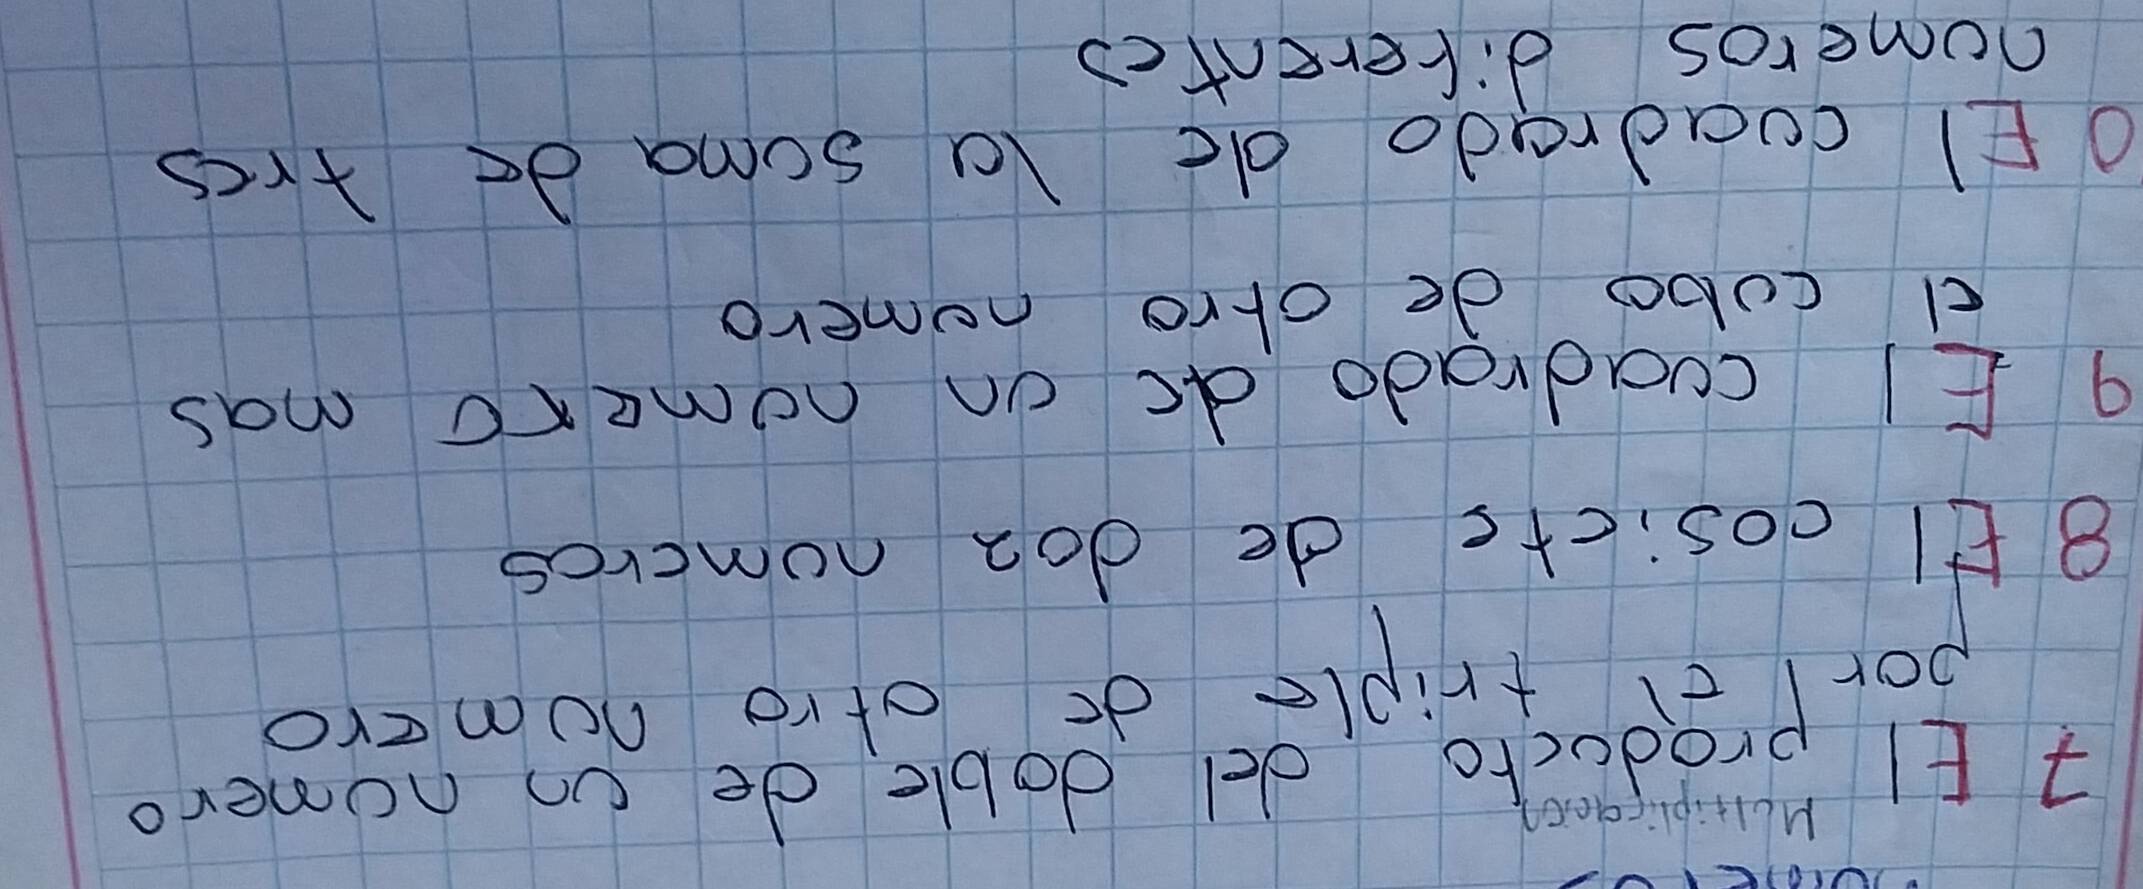 Multiplicacion
7 El producto del doble de un numero
por el triple de otro numero
8 El cosiete de doz numeros
9 El cuadrado de un numero mas
el cubo de otro numero
0 El cuadrado de la suma de tres
numeros diferentes